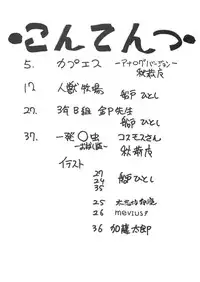 ・こんてんつ・
5. カプエス ーアナログバージョンー
秋葉虎
17 人獣牧場
船戸ひとし
27. 3年B組 金P先生
船戸ひとし
37. 一発〇虫 コスモスさん
秋葉虎
イラスト
27
24 船戸ひとし
35
25
26 mevius9
36 加籠太郎